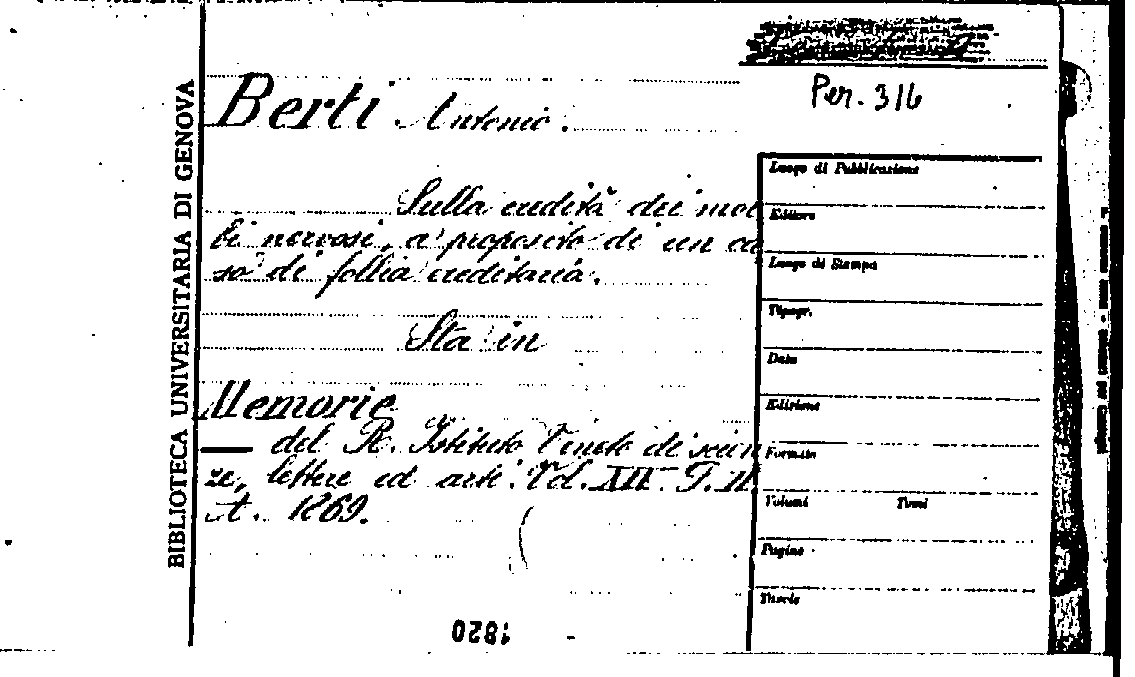 BIBLIOTECA UNIVERSITARIA DI GENOVA
Per. 316
Berti Antonio.
Sulla eredità dei mor
bi nervosi, a proposito di un ca
so di follia ereditaria.
Sta in
Memorie
— del R. Istituto Veneto di scien
ze, lettere ed arti. Vol. XIV. P. II
A. 1869.
Luogo di Pubblicazione
Editore
Luogo di Stampa
Tipogr.
Data
Edizione
Formato
Volumi Tomi
Pagine
1820